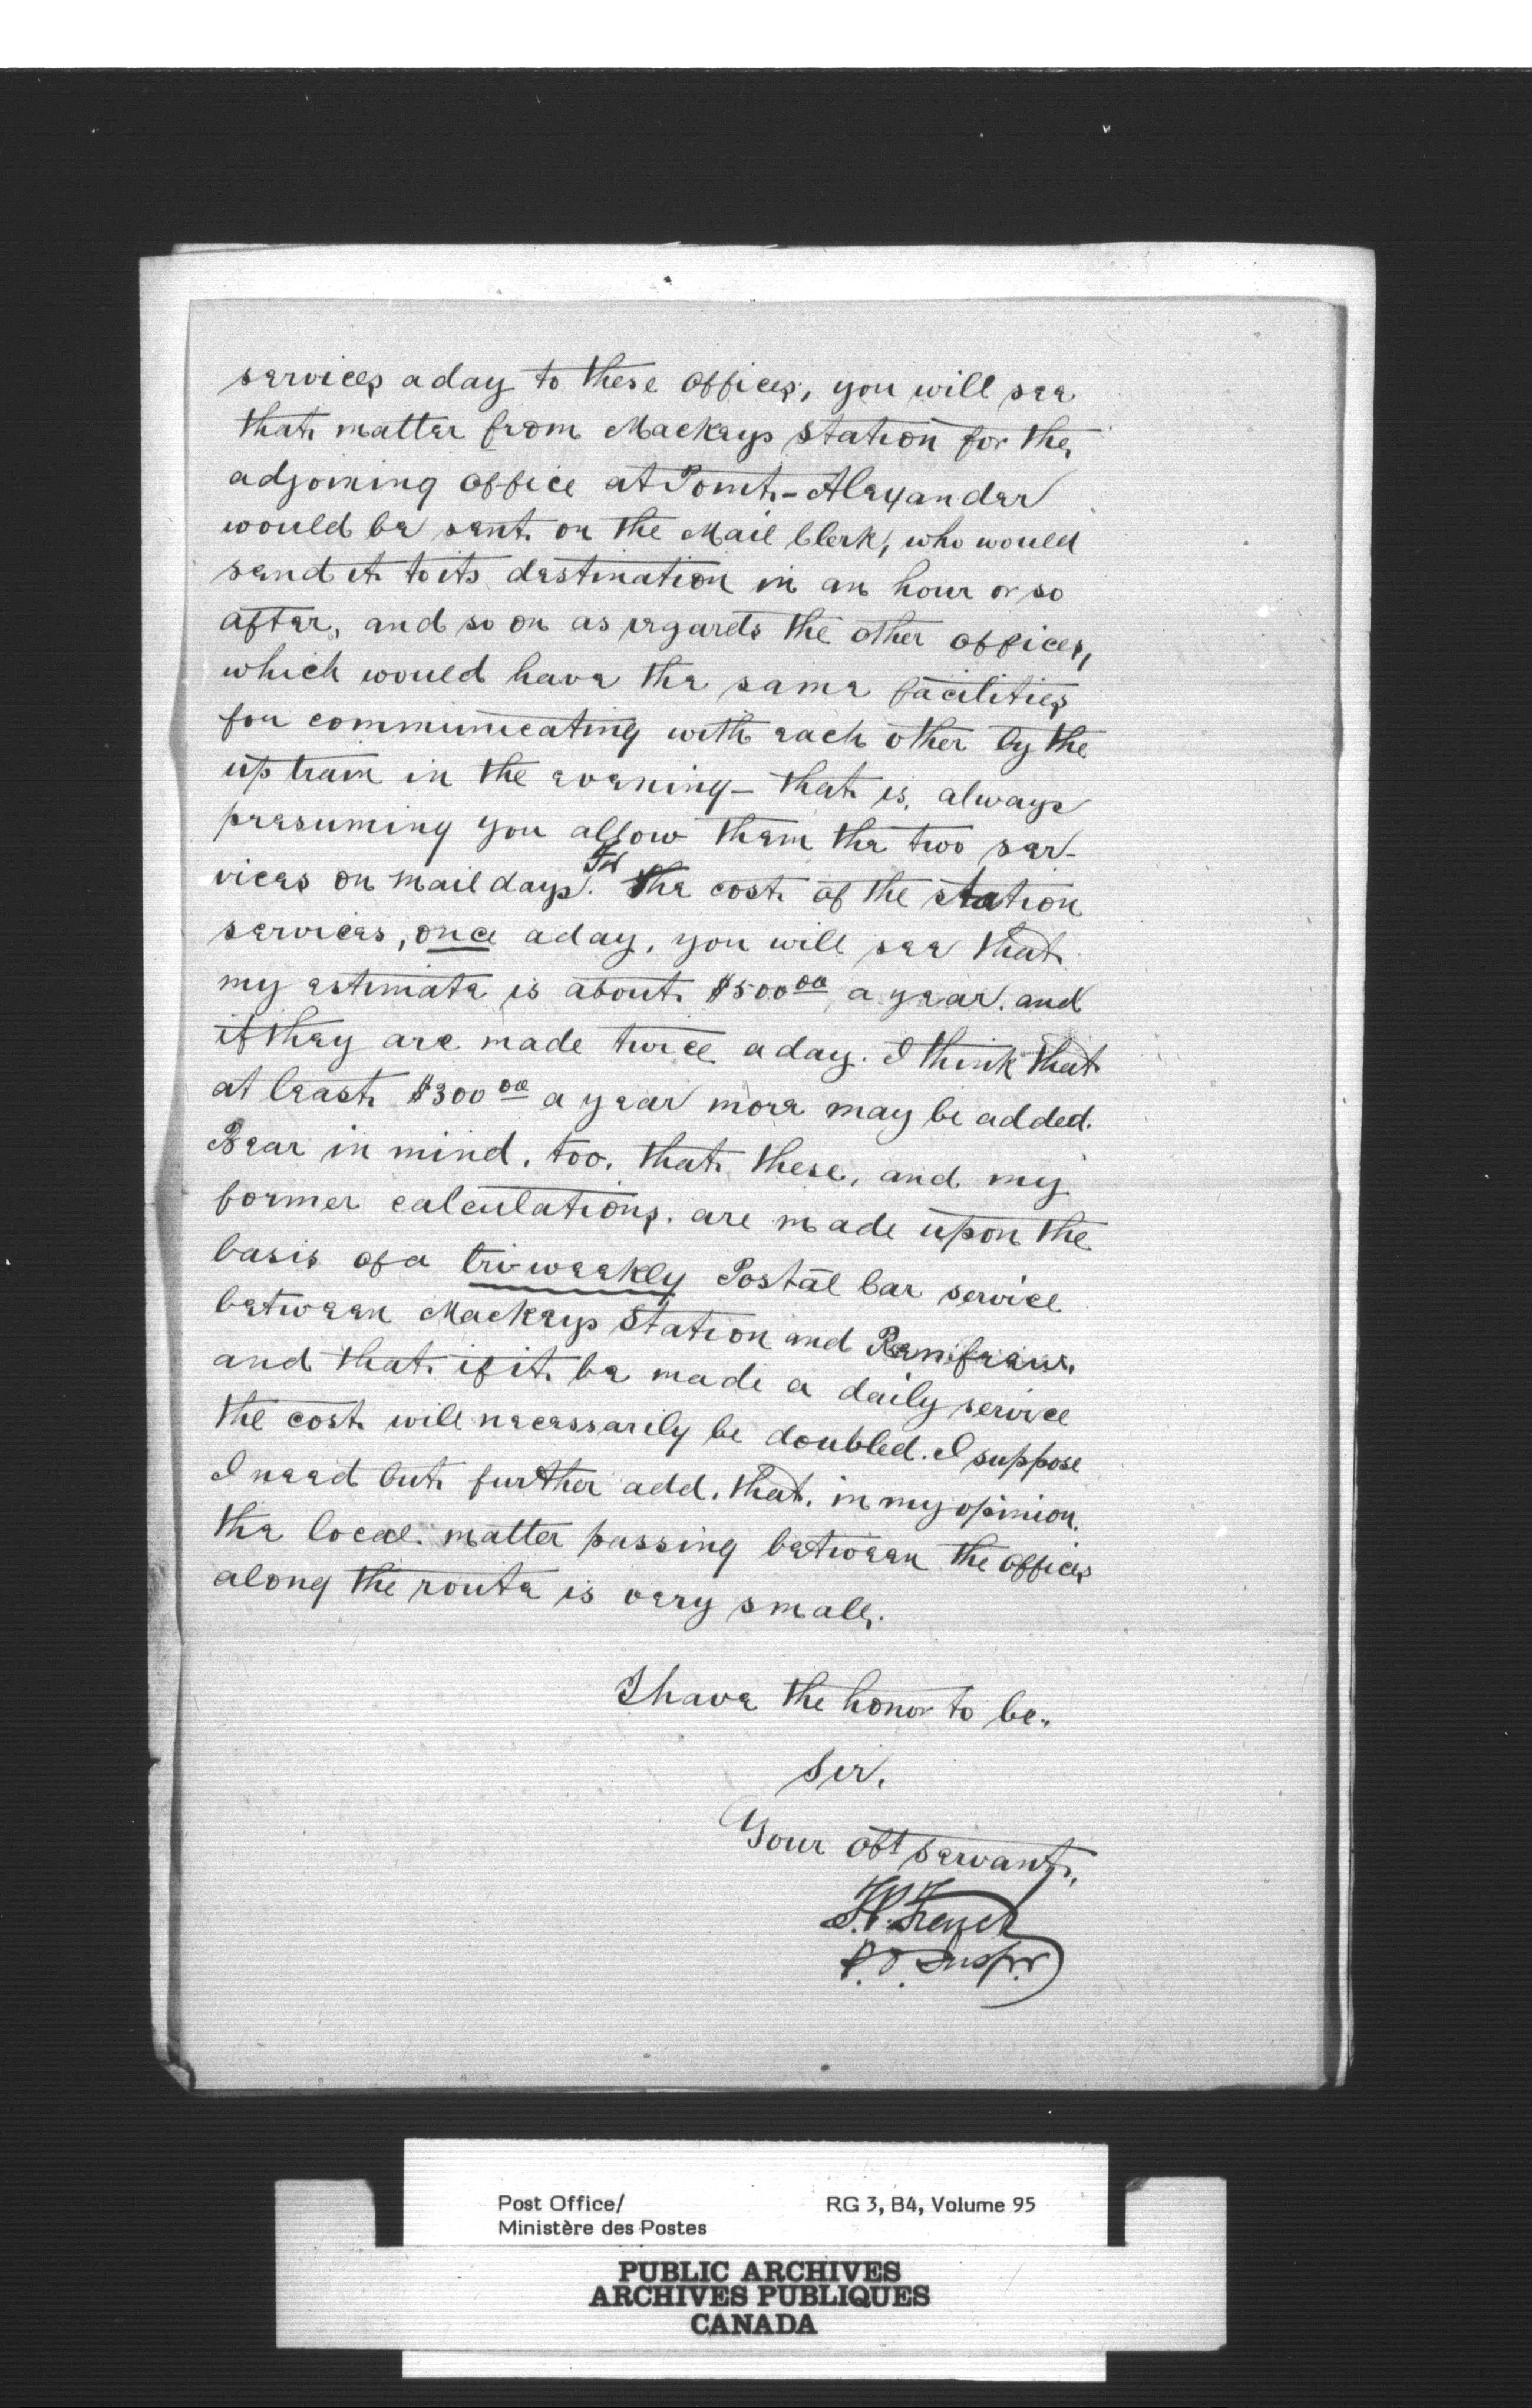 services a day to these offices, you will see
that matter from Mackeys Station for the
adjoining office at Point-Alexander
would be sent on the Mail Clerk, who would
send it to its destination in an hour or so
after, and so on as regards the other offices,
which would have the same facilities
for communicating with each other by the
up train in the evening - that is, always
presuming you allow them the two ser-
vices on mail days. The cost of the station
services, once a day, you will see that
my estimate is about $500 00 a year. and
if they are made twice a day. I think that
at least $300 00 a year more may be added.
Bear in mind, too, that these, and my
former calculations, are made upon the
basis of a tri-weekly Postal Car service
between Mackeys Station and Renfrew.
and that if it be made a daily service
the cost will necessarily be doubled. I suppose
I need but further add, that, in my opinion,
the local matter passing between the offices
along the route is very small.
I have the honor to be,
Sir,
Your obt servant,
T.P. French
P.O. Inspr
Post Office/
Ministère des Postes
RG 3, B4, Volume 95
PUBLIC ARCHIVES
ARCHIVES PUBLIQUES
CANADA